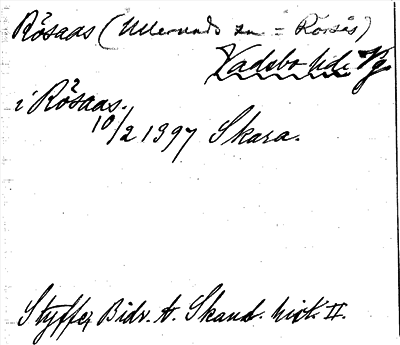 Rösaas (Ullervads sn = Rörsås)
Vadsbo hd. Vg
i Rösaas.
10/2 1397 Skara.
Styffe, Bidr. t. Skand. hist. II.